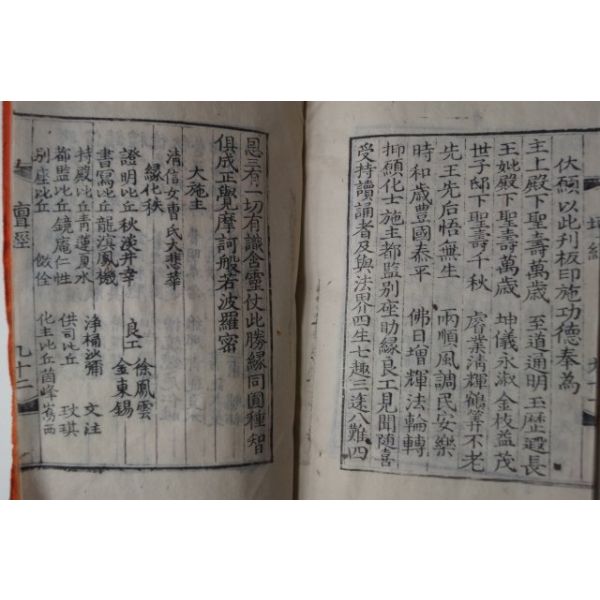 伏願以此刊板印施功德奉為
主上殿下聖壽萬歲 至道通明玉歷遐長
王妣殿下聖壽萬歲 坤儀永淑金枝益茂
世子邸下聖壽千秋 睿業淸輝鶴筭不老
先王先后悟無生 雨順風調民安樂
時和歲豊國泰平 佛日增輝法輪轉
抑願化士施主都監別座助緣良工見聞随喜
受持讀誦者及與法界四生七趣三途八難四
恩三有一切有識含靈仗此勝緣同圓種智
俱成正覺摩訶般若波羅密
大施主
清信女曹氏大悲華
緣化秩
證明比丘秋淡井幸 良工 徐鳳雲
書寫比丘龍溟鳳機 金東錫
持殿比丘青蓮夏水 淨桶沙彌 文注
都監比丘鏡庵仁性 供司比丘 玟琪
別座比丘 敬佺 化主比丘茵峰嵩西
壇經 九十二